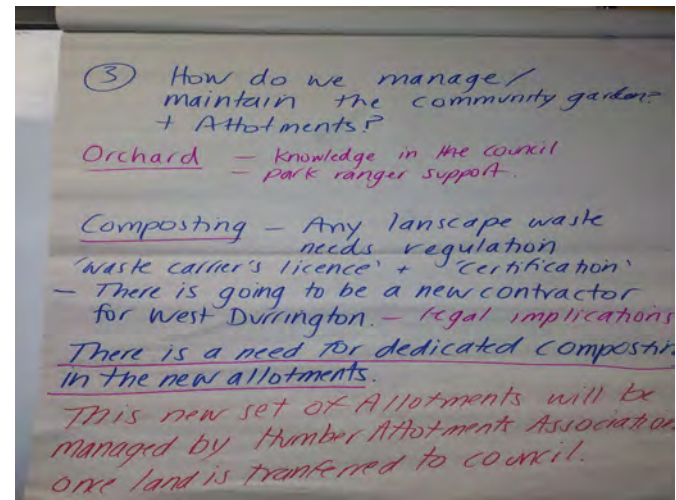 ③ How do we manage/
maintain the community garden?
+ Allotments?
Orchard – knowledge in the council
– park ranger support.
Composting – Any lanscape waste
needs regulation
'waste carrier's licence' + 'certification'
– There is going to be a new contractor
for West Durrington. – legal implications
There is a need for dedicated compostin
in the new allotments.
This new set of Allotments will be
managed by Humber Allotments Association
one land is tranferred to council.